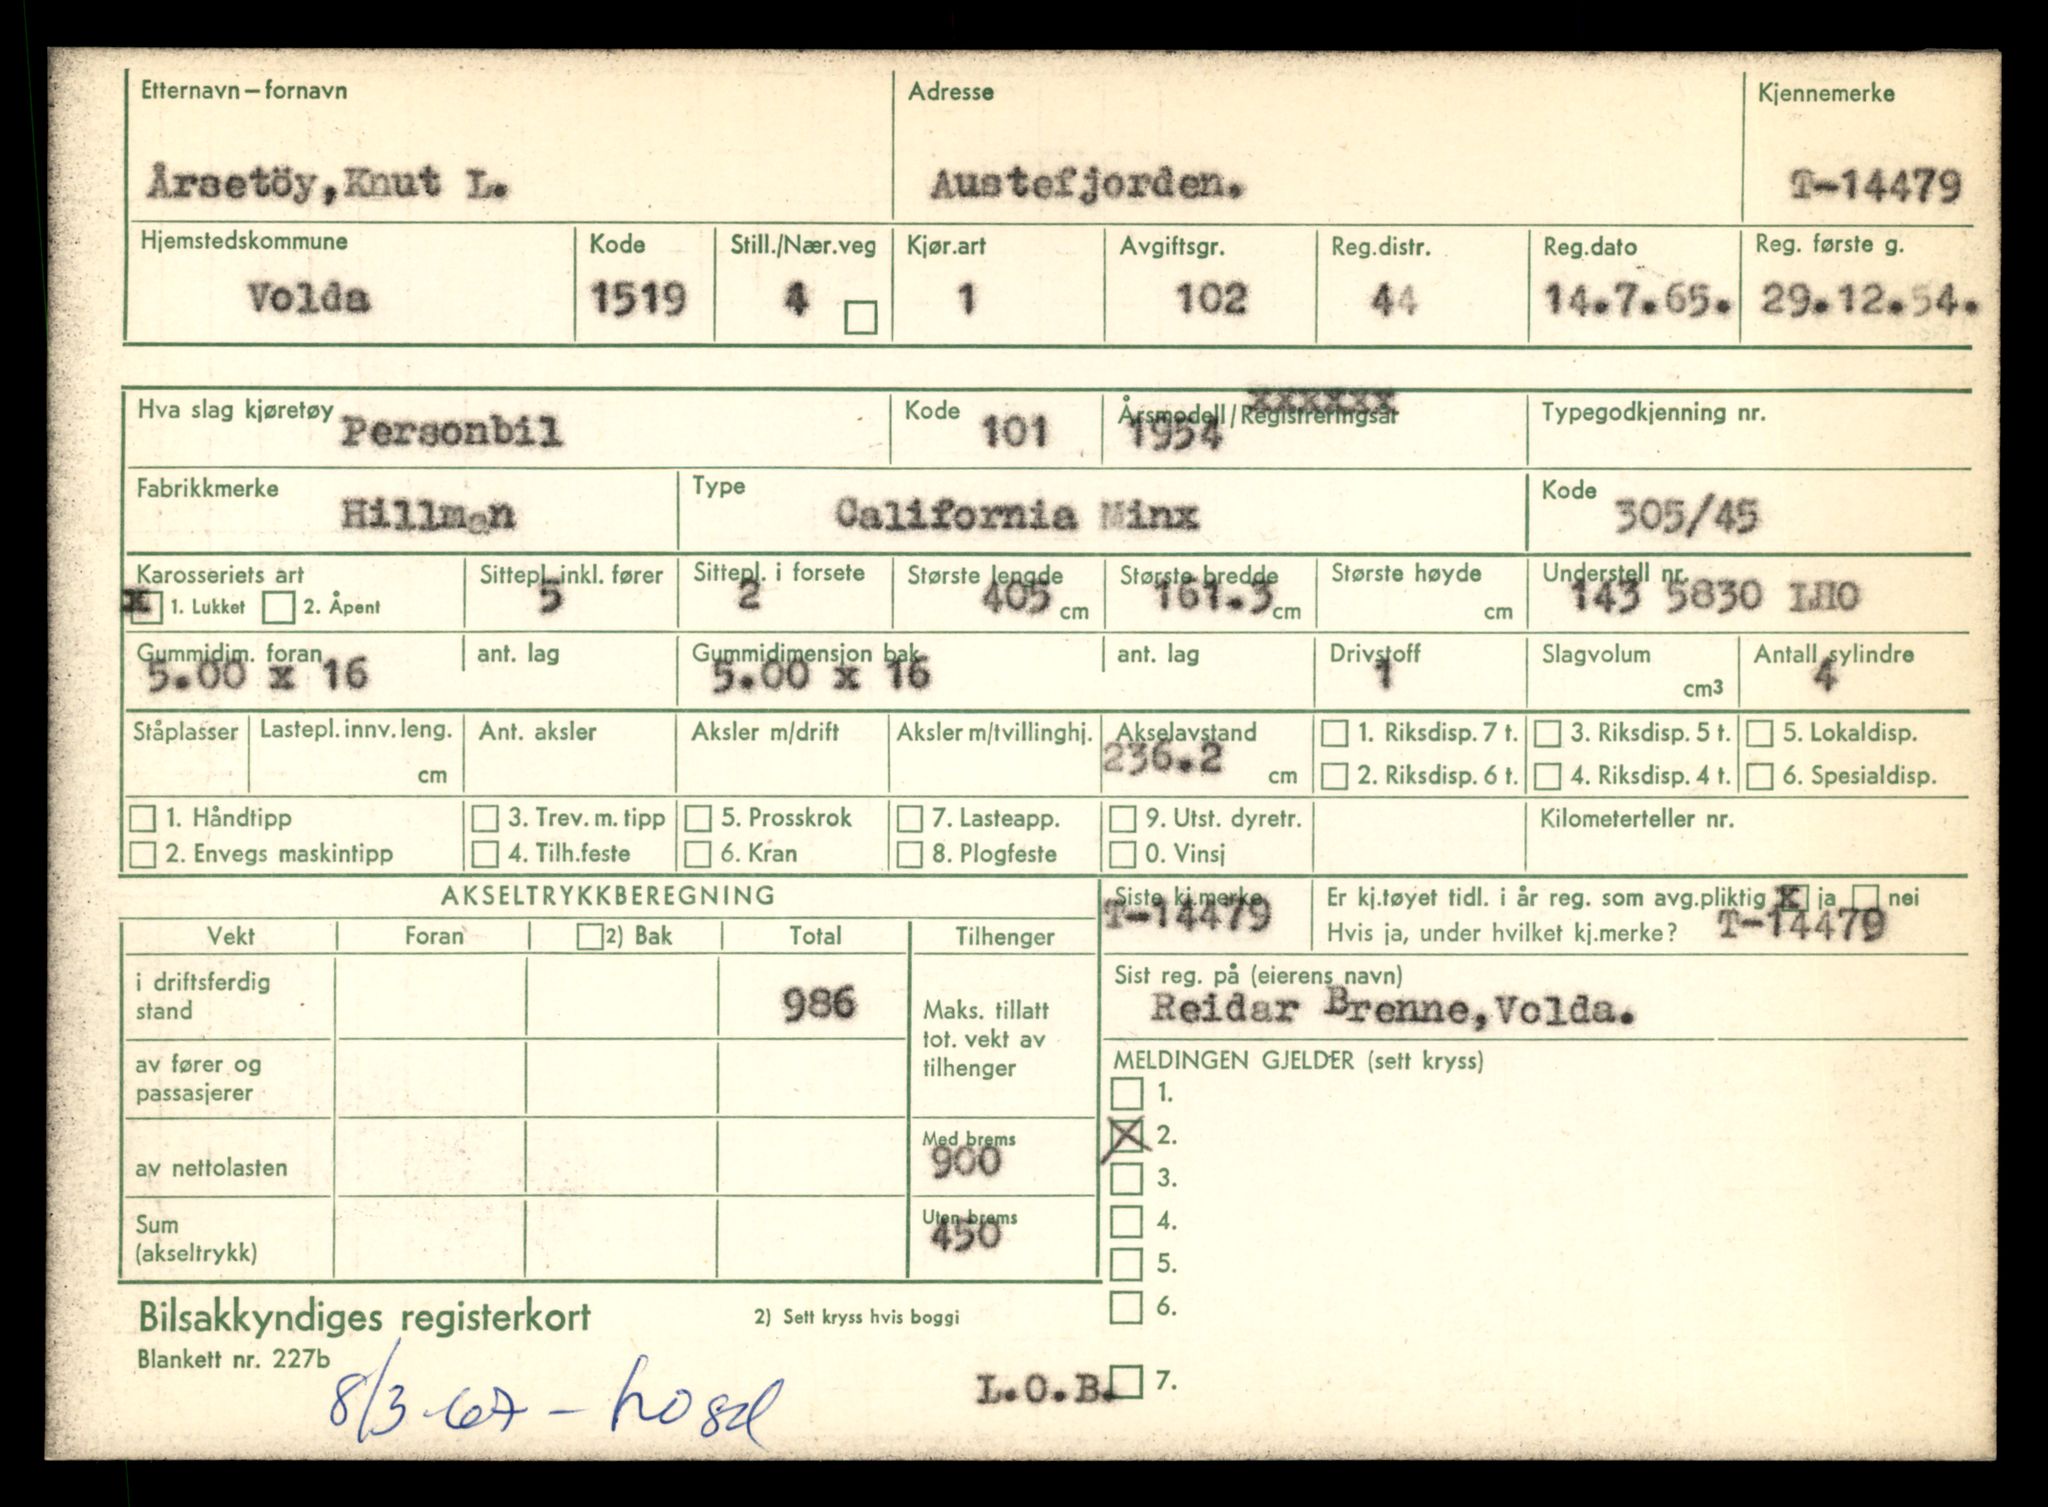 Etternavn – fornavn Adresse Kjennemerke
Årsetöy, Knut L. Austefjorden. T-14479
Hjemstedskommune Kode Still./Nær.veg Kjør.art Avgiftsgr. Reg.distr. Reg.dato Reg. første g.
Volda 1519 4 1 102 44 14.7.65. 29.12.54.
xxxxxx
Hva slag kjøretøy Kode Årsmodell/Registreringsår Typegodkjenning nr.
Personbil 101 1954
Fabrikkmerke Type Kode
Hillman California Minx 305/45
Karosseriets art Sittepl. inkl. fører Sittepl. i forsete Største lengde Største bredde Største høyde Understell nr.
x 1. Lukket 2. Åpent 5 2 405 cm 161.3 cm cm 143 5830 LHO
Gummidim. foran ant. lag Gummidimensjon bak ant. lag Drivstoff Slagvolum Antall sylindre
5.00 x 16 5.00 x 16 1 cm3 4
Ståplasser Lastepl. innv. leng. Ant. aksler Aksler m/drift Aksler m/tvillinghj. Akselavstand 1. Riksdisp. 7 t. 3. Riksdisp. 5 t. 5. Lokaldisp.
cm 236.2 cm 2. Riksdisp. 6 t. 4. Riksdisp. 4 t. 6. Spesialdisp.
1. Håndtipp 3. Trev. m. tipp 5. Prosskrok 7. Lasteapp. 9. Utst. dyretr. Kilometerteller nr.
2. Envegs maskintipp 4. Tilh.feste 6. Kran 8. Plogfeste 0. Vinsj
AKSELTRYKKBEREGNING Siste kj.merke Er kj.tøyet tidl. i år reg. som avg.pliktig X ja nei
T-14479 Hvis ja, under hvilket kj.merke? T-14479
Vekt Foran 2) Bak Total Tilhenger
Sist reg. på (eierens navn)
i driftsferdig
stand 986 Maks. tillatt Reidar Brenne, Volda.
tot. vekt av
av fører og MELDINGEN GJELDER (sett kryss)
passasjerer tilhenger 1.
Med brems X 2.
av nettolasten 900 3.
Sum Uten brems 4.
(akseltrykk) 450 5.
Bilsakkyndiges registerkort 2) Sett kryss hvis boggi 6.
Blankett nr. 227b
L.O.B. 7.
8/3-67 –